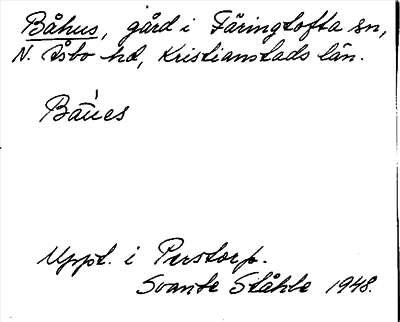 Båhus, gård i Färingtofta sn,
N. Åsbo hd, Kristianstads län.
Bàües
Uppt. i Perstorp.
Svante Ståhle 1948.